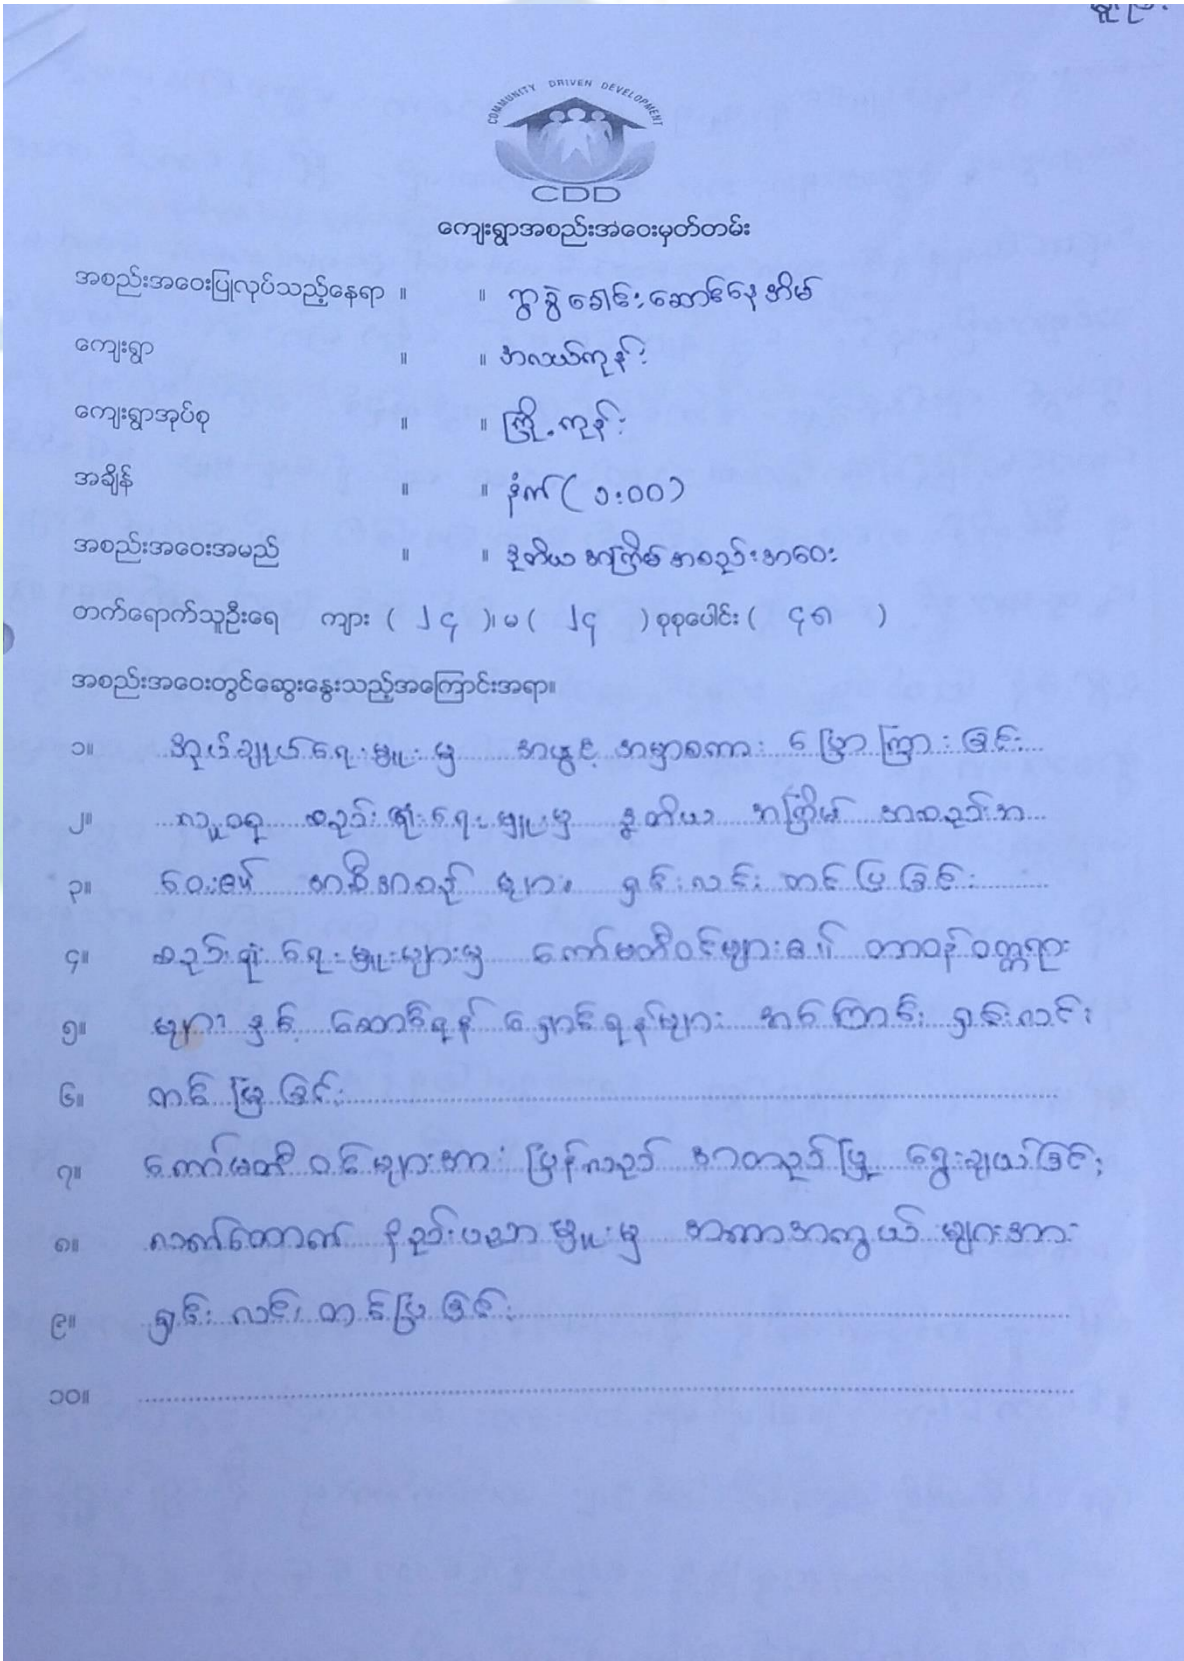 COMMUNITY DRIVEN DEVELOPMENT
CDD
ကျေးရွာအစည်းအဝေးမှတ်တမ်း
အစည်းအဝေးပြုလုပ်သည့်နေရာ ။ ။ ရွာခွဲခေါင်းဆောင်နေအိမ်
ကျေးရွာ ။ ။ အလယ်ကုန်း
ကျေးရွာအုပ်စု ။ ။ ကြို့ကုန်း
အချိန် ။ ။ နံက် (၁:၀၀)
အစည်းအဝေးအမည် ။ ။ ဒုတိယအကြိမ်အစည်းအဝေး
တက်ရောက်သူဦးရေ ကျား ( ၂၄ )၊ မ ( ၂၄ ) စုစုပေါင်း ( ၄၈ )
အစည်းအဝေးတွင်ဆွေးနွေးသည့်အကြောင်းအရာ။
၁။ အုပ်ချုပ်ရေးမှူးမှ အဖွင့်အမှာစကား ပြောကြားခြင်း
၂။ လူထု စည်းရုံးရေးမှူးမှ ဒုတိယ အကြိမ် အစည်းအ
၃။ ဝေး၏ အစီအစဉ် များ ရှင်းလင်း တင်ပြခြင်း
၄။ စည်းရုံးရေးမှူးများမှ ကော်မတီဝင်များ၏ တာဝန်ဝတ္တရား
၅။ များနှင့် ဆောင်ရန် ရှောင်ရန်များ အကြောင်း ရှင်းလင်း
၆။ တင်ပြခြင်း
၇။ ကော်မတီဝင်များအား ပြန်လည် အတည်ပြု ရွေးချယ်ခြင်း
၈။ လက်ထောက် နည်းပညာမှူးမှ အကာအကွယ်များအား
၉။ ရှင်းလင်းတင်ပြခြင်း
၁၀။